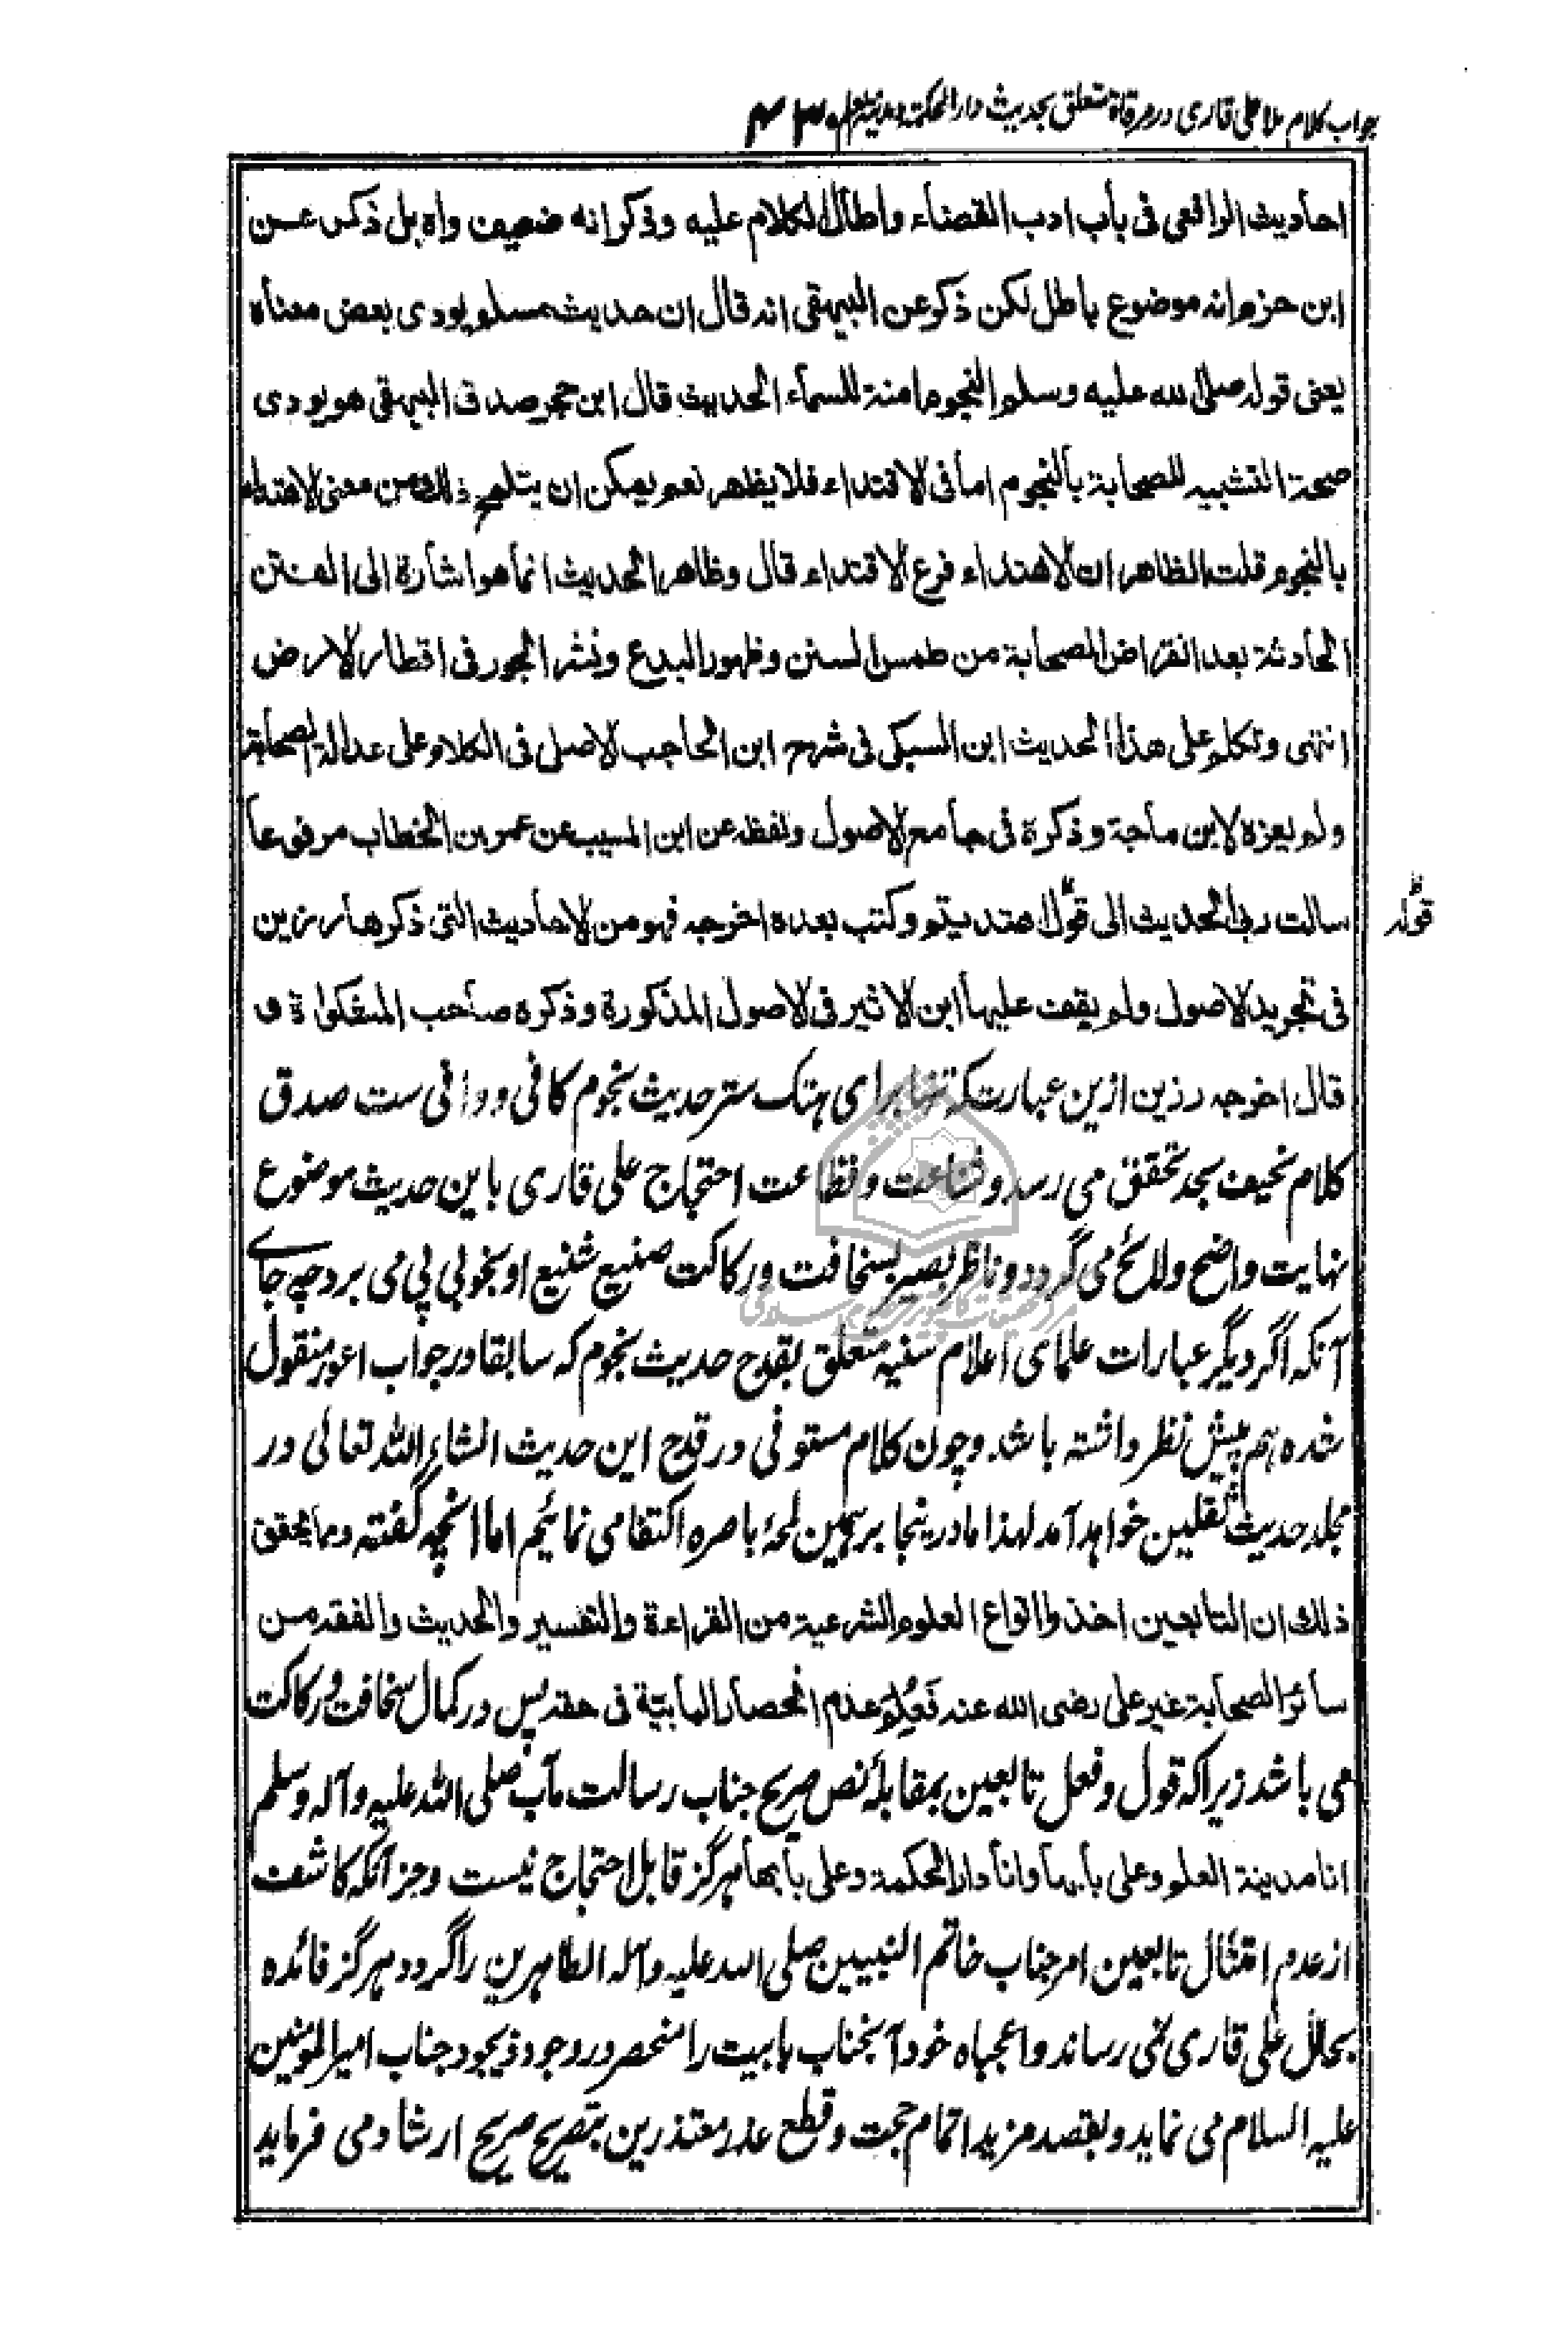 جواب کلام ملا علی قاری در مرقاة متعلق بحدیث دار الحکمة و مدینة العلم
احاديث الرافعي في باب ادب القضاء واطال الكلام عليه وذكر انه ضعيف واه بل ذكر عن
ابن حزم انه موضوع باطل لكن ذكر عن البيهقي انه قال ان حديث مسلم يودى بعض معناه
يعنى قوله صلى الله عليه وسلم النجوم امنة للسماء الحديث قال ابن حجر صدق البيهقي هو يودى
صحة التشبيه للصحابة بالنجوم اما فى الاقتداء فلا يظهر نعم يمكن ان يتلمح ذلك من معنى الاهتداء
بالنجوم قلت الظاهر ان الاهتداء فرع الاقتداء قال وظاهر الحديث انما هو اشارة الى الفتن
الحادثة بعد انقراض الصحابة من طمس السنن وظهور البدع ونشر الجور فى اقطار الارض
انتهى وتكلم على هذا الحديث ابن السبكى فى شرح ابن الحاجب الاصلى فى الكلام على عدالة الصحابة
ولم يعزه لابن ماجة وذكره فى جامع الاصول ولفظه عن ابن المسيب عن عمر بن الخطاب مرفوعا
سالت ربى الحديث الى قوله اهتديتم وكتب بعده اخرجه فهو من الاحاديث التى ذكرها رزين
قوله
فى تجريد الاصول ولم يقف عليها ابن الاثير فى الاصول المذكورة وذكره صاحب المشكوٰة و
قال اخرجه رزين ازین عبارت که تنها برای هتک ستر حدیث نجوم کافی و وافی ست صدق
کلام نحیف بحد تحقق می رسد و شناعت و فظاعت احتجاج علی قاری باین حدیث موضوع
نهایت واضح ولائح می گردد و ناظر بصیر بسخافت و رکاکت صنیع شنیع او بخوبی پی می برد چه جای
آنکه اگر دیگر عبارات علمای اعلام سنیه متعلق بقدح حدیث نجوم که سابقا در جواب اعور منقول
شده هم پیش نظر داشته باشد و چون کلام مستوفی در قدح این حدیث انشاء الله تعالی در
مجلد حدیث ثقلین خواهد آمد لهذا ما درینجا بر همین لمحهٔ باصره اکتفا می نمائیم اما آنچه گفته ومما يحقق
ذلك ان التابعين اخذوا انواع العلوم الشرعية من القراءة والتفسير والحديث والفقه من
سائر الصحابة غير على رضى الله عنه فَعُلِمَ عدم انحصار البابيّة فى حقه پس در کمال سخافت و رکاکت
می باشد زیرا که قول و فعل تابعین بمقابلهٔ نص صریح جناب رسالت مآب صلی الله علیه وآله وسلم
انا مدينة العلم وعلى بابها وانا دار الحكمة وعلى بابها هرگز قابل احتجاج نیست وجز آنکه کاشف
از عدم امتثال تابعین امر جناب خاتم النبیین صلی الله علیه وآله الطاهرین را گردد هرگز فائده
بحال علی قاری نمی رساند واعجباه خود آنجناب بابیت را منحصر در وجود ذیجود جناب امیر المومنین
علیه السلام می نماید و بقصد مزید اتمام حجت و قطع عذر معتذرین بتصریح صریح ارشاد می فرماید